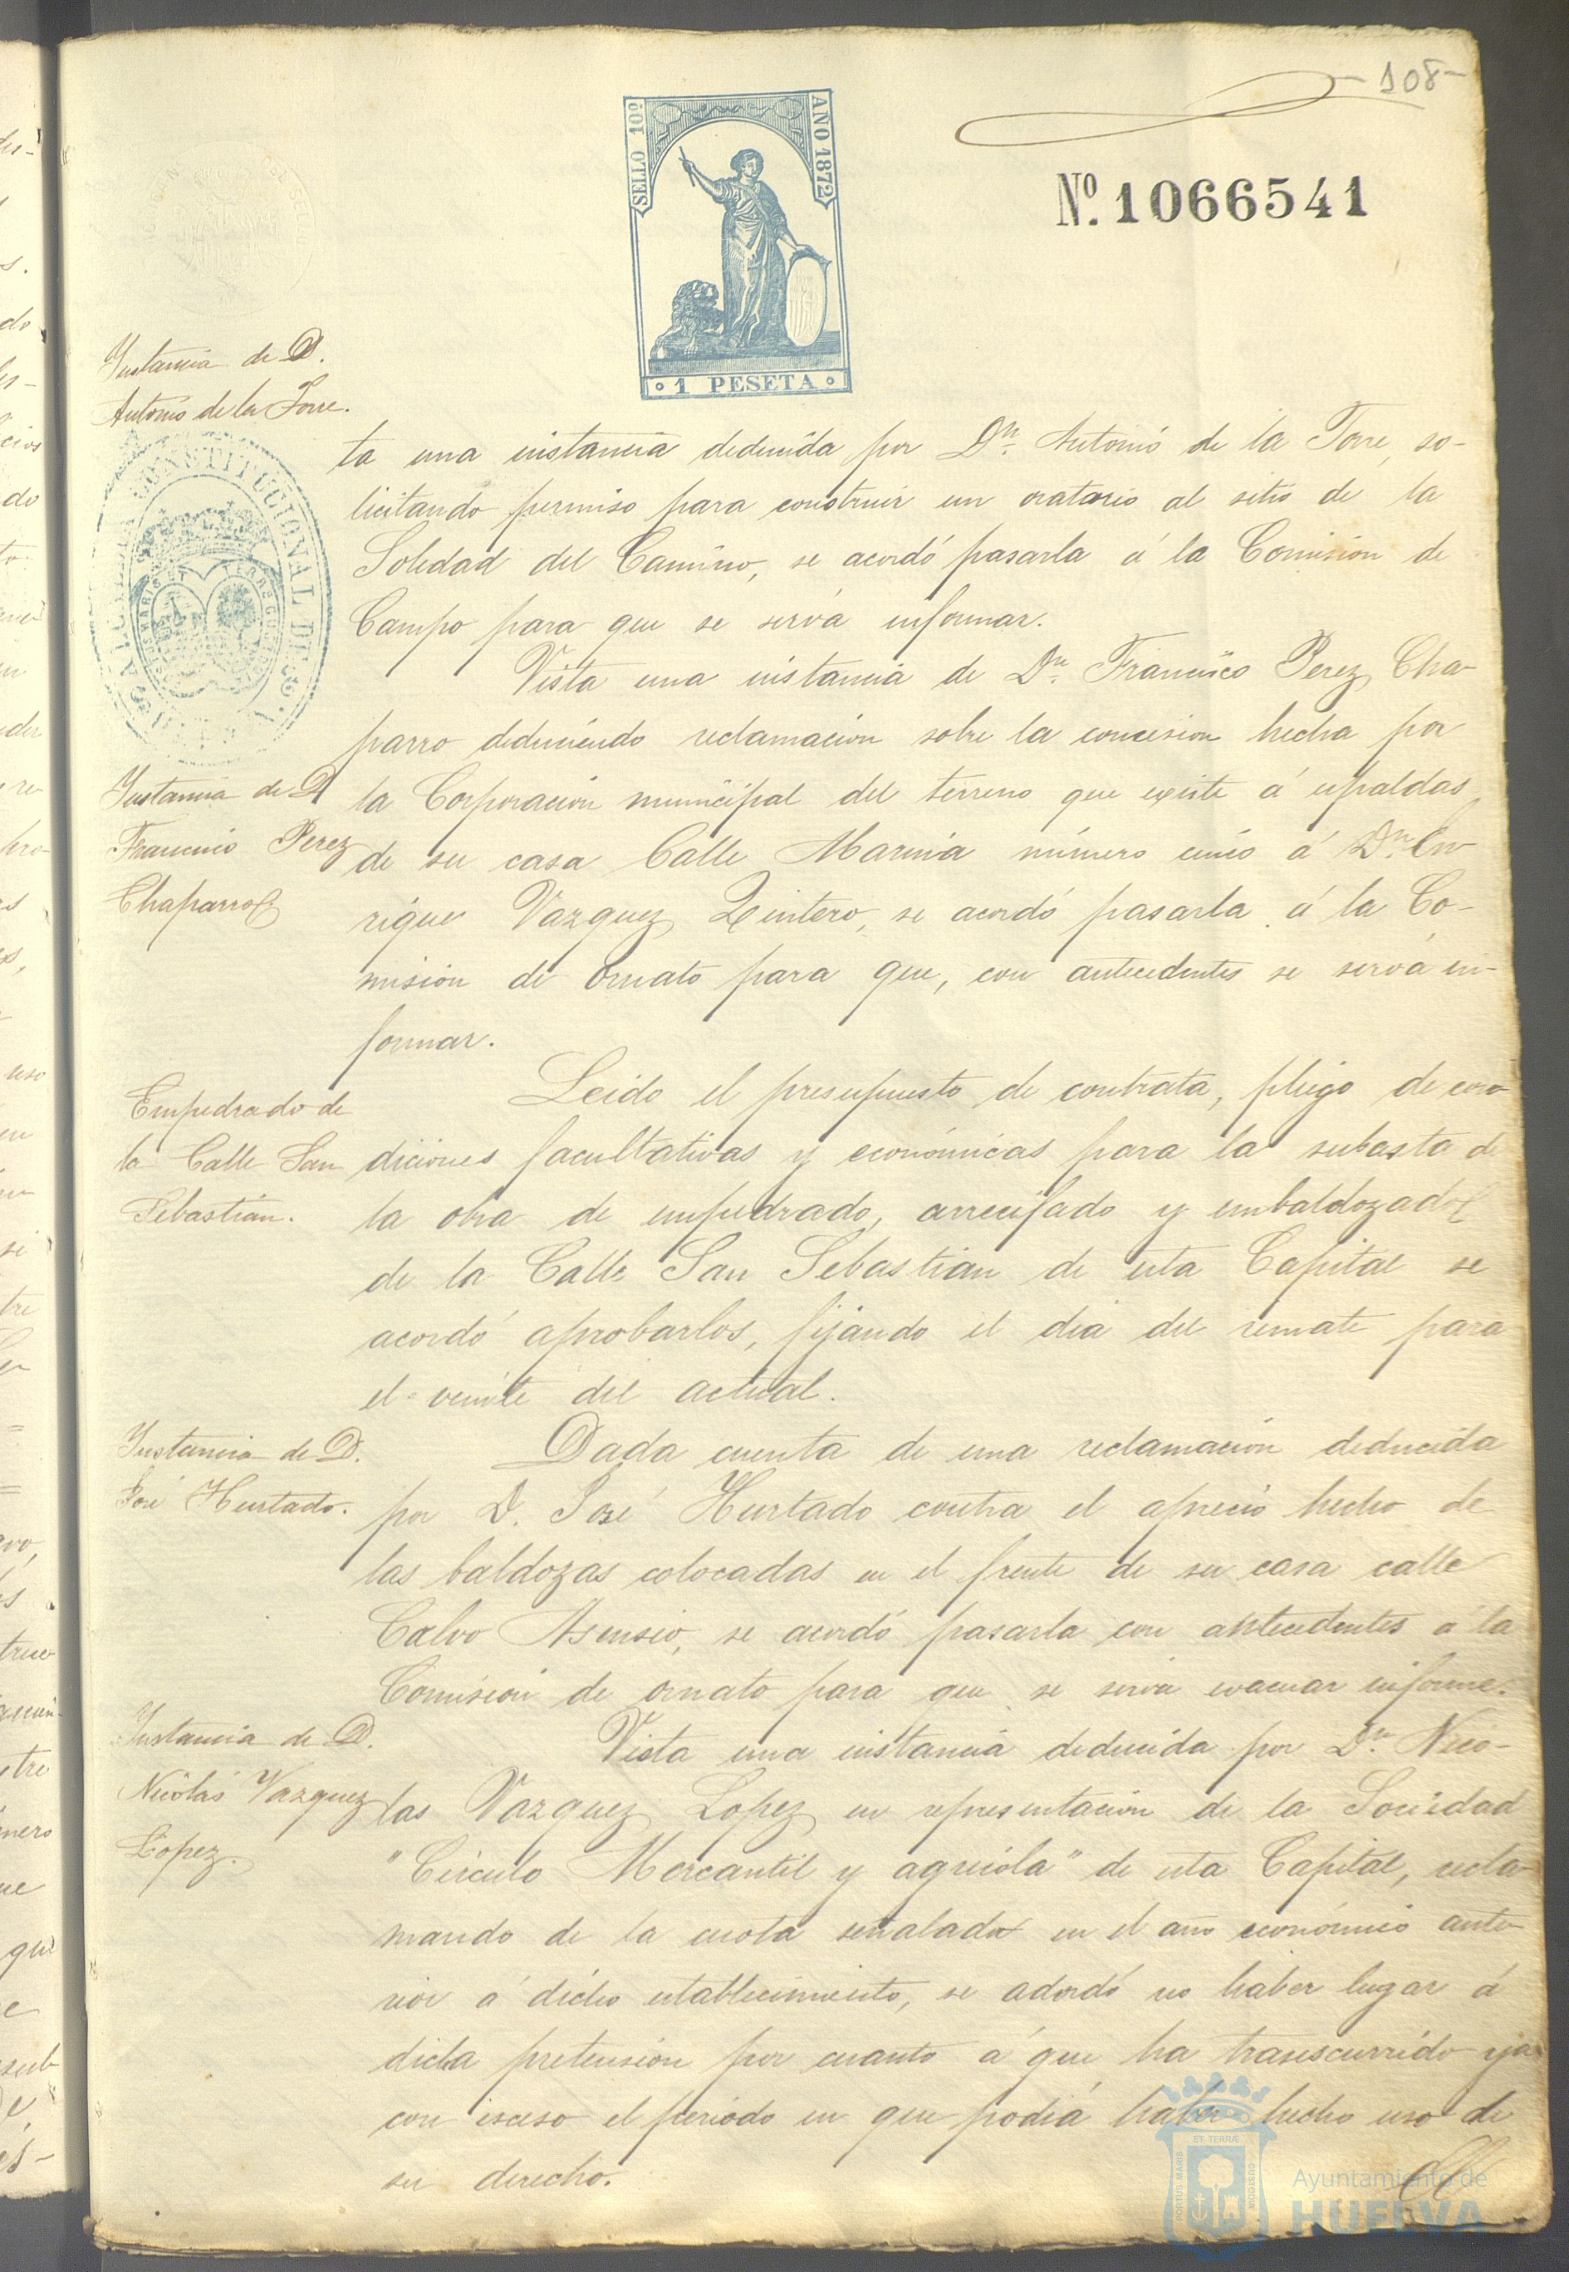 -108-
SELLO 10º
AÑO 1872
Nº. 1066541
1 PESETA
Instancia de D.
Antonio de la Torre.
ta una instancia deducida por Dn. Antonio de la Torre, so-
licitando permiso para construir un oratorio al sitio de la
Soledad del Camino, se acordó pasarla á la Comision de
Campo para que se sirva informar.
ALCALDIA CONSTITUCIONAL DE
Instancia de D
Francisco Perez
Chaparro
Vista una instancia de Dn. Francisco Perez Cha-
parro deduciendo reclamacion sobre la concesion hecha por
la Corporacion municipal del terreno que existe á espaldas
de su casa Calle Marina número cinco á Dn. En-
rique Vazquez Quintero, se acordó pasarla á la Co-
mision de Ornato para que, con antecedentes se sirva in-
formar.
Empedrado de
la Calle San
Sebastian.
Leido el presupuesto de contrata, pliego de con
diciones facultativas y económicas para la subasta d
la obra de empedrado, arrecifado y embaldozado
de la Calle San Sebastian de esta Capital se
acordó aprobarlos, fijando el dia del remate para
el veinte del actual.
Instancia de D.
José Hurtado.
Dada cuenta de una reclamacion deducida
por D. José Hurtado contra el aprecio hecho de
las baldozas colocadas en el frente de su casa calle
Calvo Asensio, se acordó pasarla con antecedentes á la
Comision de ornato para que se sirva evacuar informe.
Instancia de D.
Nicolás Vazquez
Lopez.
Vista una instancia deducida por Dn. Nico-
las Vazquez Lopez en representacion de la Sociedad
"Círculo Mercantil y agricola" de esta Capital, recla-
mando de la cuota señalada en el año económico ante-
rior á dicho establecimiento, se adordó no haber lugar á
dicha pretension por cuanto á que ha transcurrido ya
con esceso el período en que podia haber hecho uso de
su derecho.
PORTUS MARIS ET TERRÆ CUSTODIA
Ayuntamiento de
HUELVA